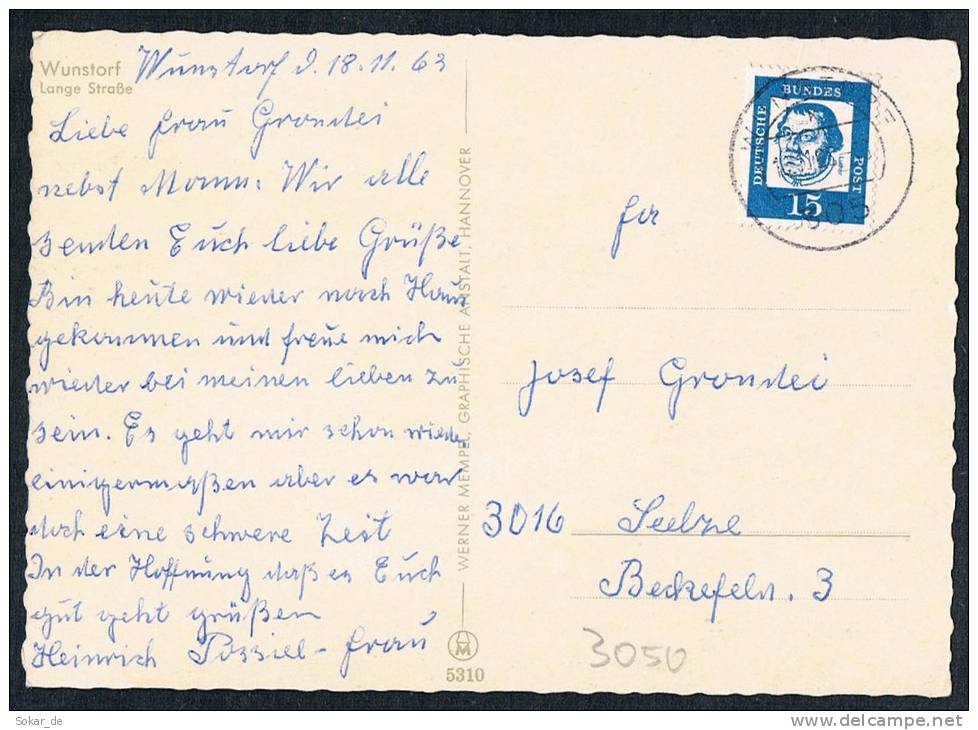 Wunstorf
Lange Straße
Wunstorf d. 18.11.63
Liebe Frau Grondei
nebst Mann. Wir alle
senden Euch liebe Grüße
Bin heute wieder nach Haus
gekommen und freue mich
wieder bei meinen lieben zu
sein. Es geht mir schon wieder
einigermaßen aber es war
doch eine schwere Zeit
In der Hoffnung daß es Euch
gut geht grüßen
Heinrich Possiel - Frau
WERNER MEMPEL, GRAPHISCHE ANSTALT, HANNOVER
5310
DEUTSCHE
BUNDES
POST
15
Josef Grondei
3016 Seelze
3
3050
Sokar_de
www.delcampe.net